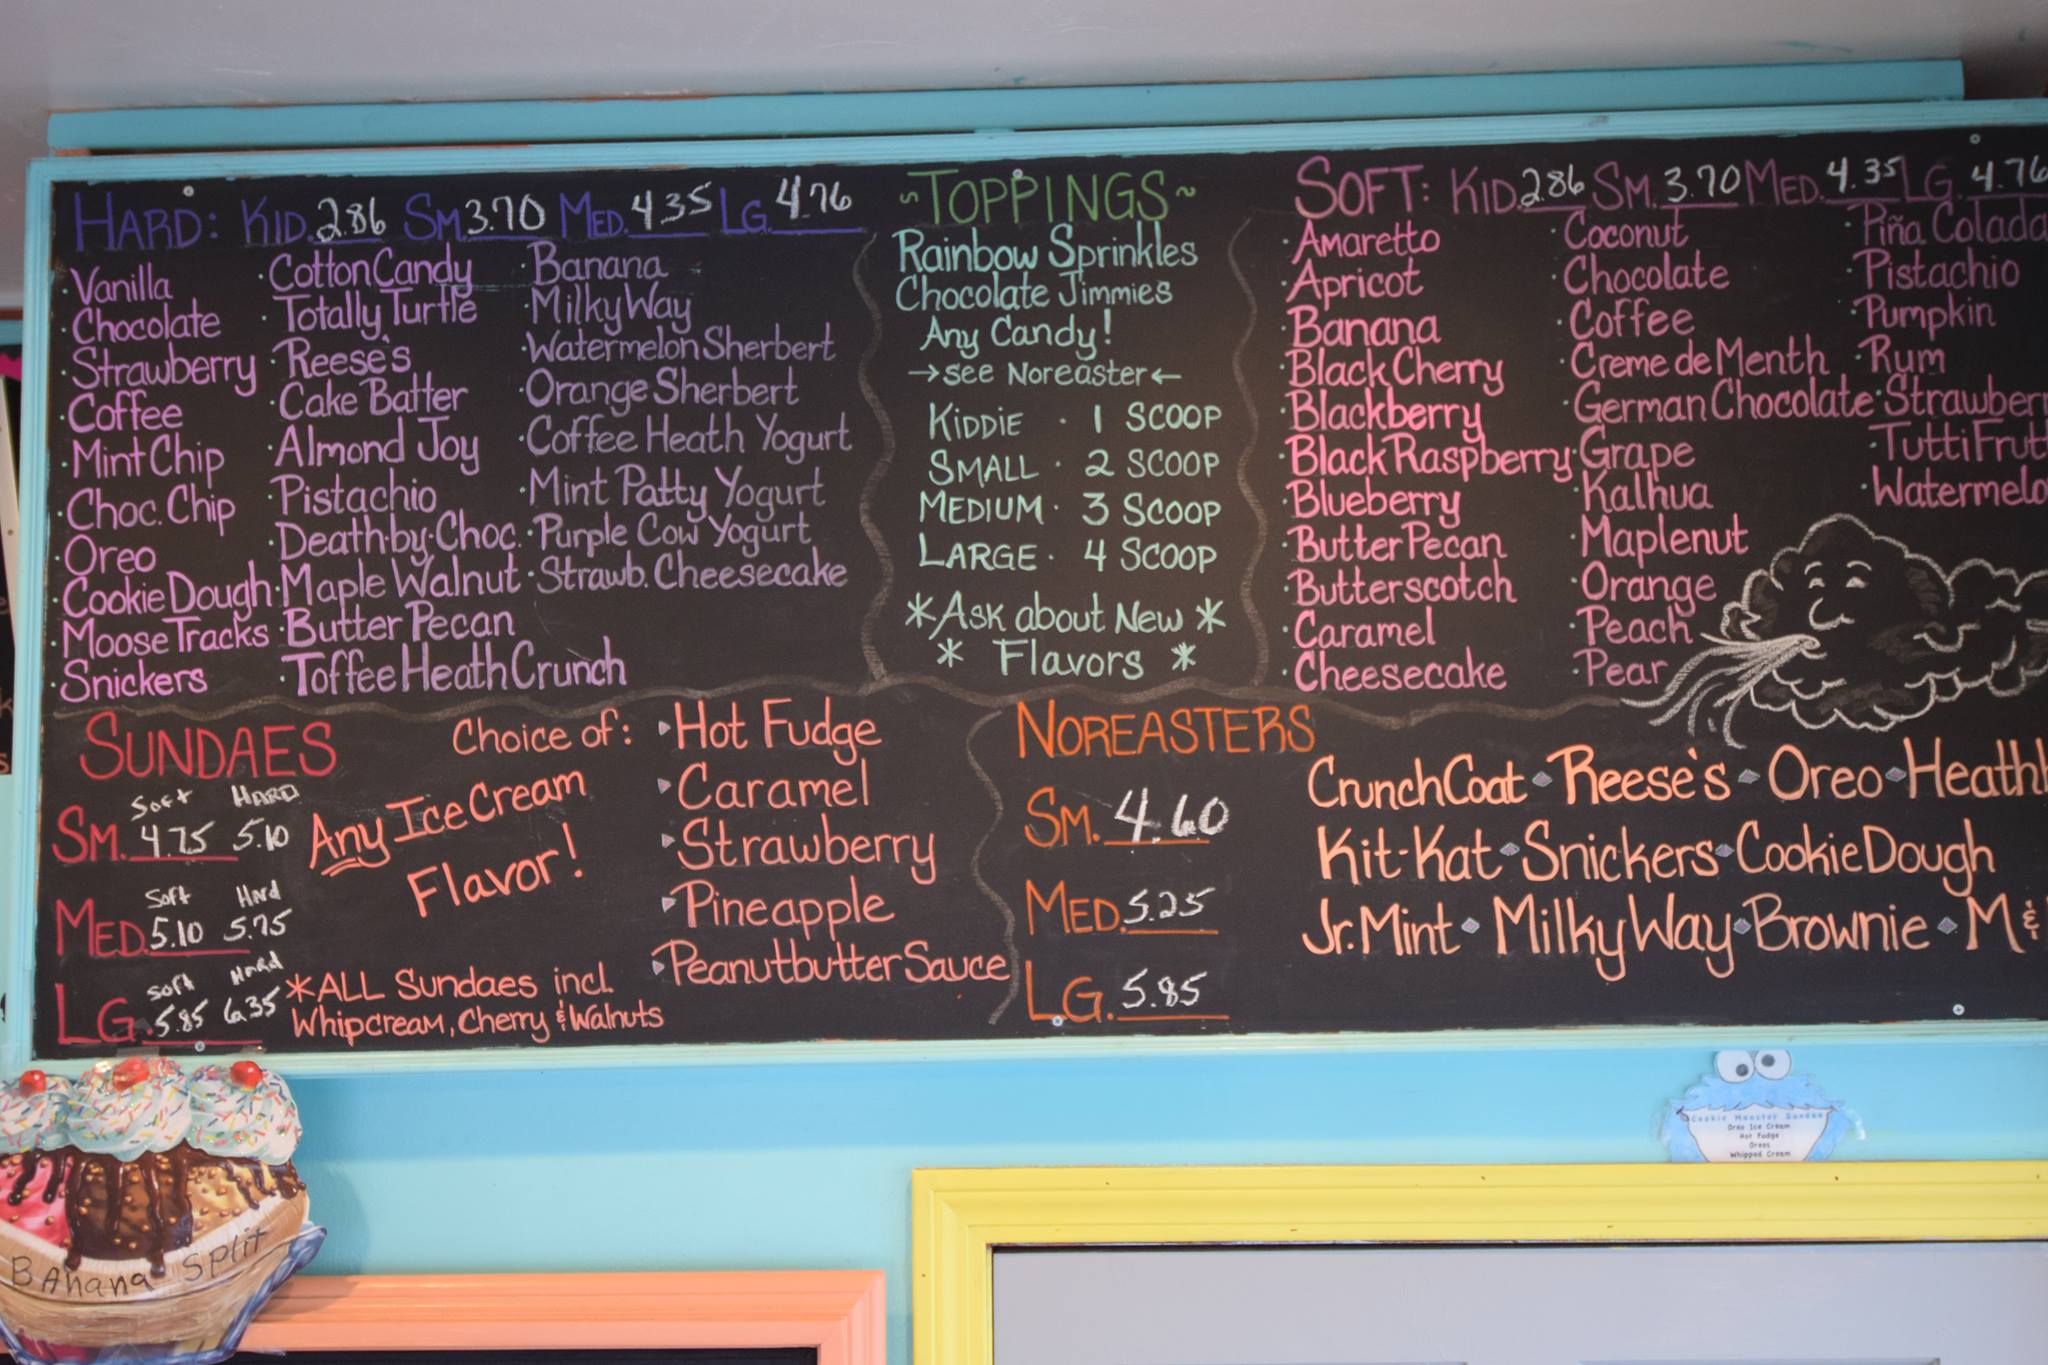 HARD: KID. 2.86 SM. 3.70 MED. 4.35 LG. 4.76
· Vanilla
· Chocolate
· Strawberry
· Coffee
· Mint Chip
· Choc. Chip
· Oreo
· Cookie Dough
· Moose Tracks
· Snickers
· Cotton Candy
· Totally Turtle
· Reese's
· Cake Batter
· Almond Joy
· Pistachio
· Death·by·Choc.
· Maple Walnut
· Butter Pecan
· Toffee Heath Crunch
· Banana
· Milky Way
· Watermelon Sherbert
· Orange Sherbert
· Coffee Heath Yogurt
· Mint Patty Yogurt
· Purple Cow Yogurt
· Strawb. Cheesecake
~TOPPINGS~
Rainbow Sprinkles
Chocolate Jimmies
Any Candy!
→see Noreaster←
KIDDIE · 1 SCOOP
SMALL · 2 SCOOP
MEDIUM · 3 SCOOP
LARGE · 4 SCOOP
*Ask about New*
* Flavors *
SOFT: KID. 2.86 SM. 3.70 MED. 4.35 LG. 4.76
· Amaretto
· Apricot
· Banana
· Black Cherry
· Blackberry
· Black Raspberry
· Blueberry
· Butter Pecan
· Butterscotch
· Caramel
· Cheesecake
· Coconut
· Chocolate
· Coffee
· Creme de Menth
· German Chocolate
· Grape
· Kalhua
· Maplenut
· Orange
· Peach
· Pear
· Piña Colada
· Pistachio
· Pumpkin
· Rum
· Strawber
· Tutti Frut
· Watermelo
SUNDAES
Soft HARD
SM. 4.75 5.10
Soft Hard
MED. 5.10 5.75
Soft Hard
LG. 5.85 6.35
Any Ice Cream
Flavor!
*ALL Sundaes incl.
Whipcream, Cherry & Walnuts
Choice of:
Hot Fudge
Caramel
Strawberry
Pineapple
Peanutbutter Sauce
NOREASTERS
SM. 4.60
MED. 5.25
LG. 5.85
Crunch Coat · Reese's · Oreo · Heath
Kit-Kat · Snickers · Cookie Dough
Jr. Mint · Milky Way · Brownie · M &
Cookie Monster Sundae
Oreo Ice Cream
Hot Fudge
Oreos
Whipped Cream
Banana Split